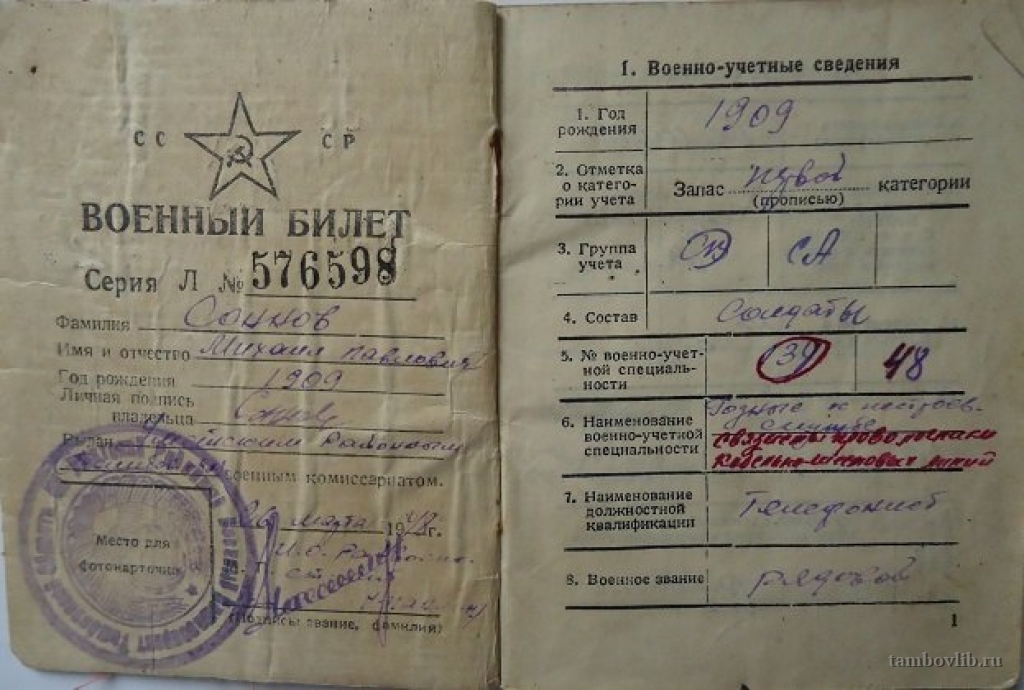 СС СР
ВОЕННЫЙ БИЛЕТ
Серия Л № 576598
Фамилия Соннов
Имя и отчество Михаил Павлович
Год рождения 1909
Личная подпись
владельца
Выдан районным
военным комиссариатом.
марта 1948г.
Место для
фотокарточки
(Подпись, звание, фамилия)
I. Военно-учетные сведения
1. Год
рождения
1909
2. Отметка
о катего-
рии учета
Запас первой категории
(прописью)
3. Группа
учета
СА
4. Состав Солдаты
5. № военно-учет-
ной специаль-
ности
139
48
6. Наименование
военно-учетной
специальности
Годные к нестроев.
службе
связисты
кабельно-шестовых линий
7. Наименование
должностной
квалификации
Телефонист
8. Военное звание рядовой
1
tambovlib.ru